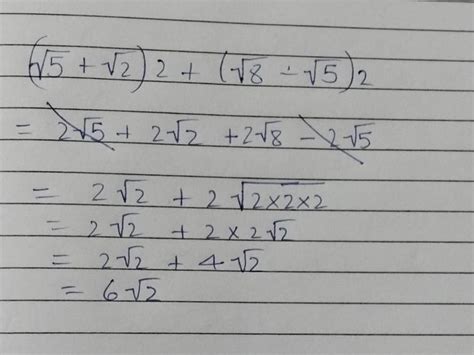 (√5 + √2)2 + (√8 - √5)2
= 2√5 + 2√2 + 2√8 - 2√5
= 2√2 + 2√2×2×2
= 2√2 + 2×2√2
= 2√2 + 4√2
= 6√2